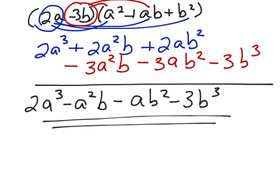 (2a - 3b)(a² + ab + b²)
2a³ + 2a²b + 2ab²
- 3a²b - 3ab² - 3b³
2a³ - a²b - ab² - 3b³